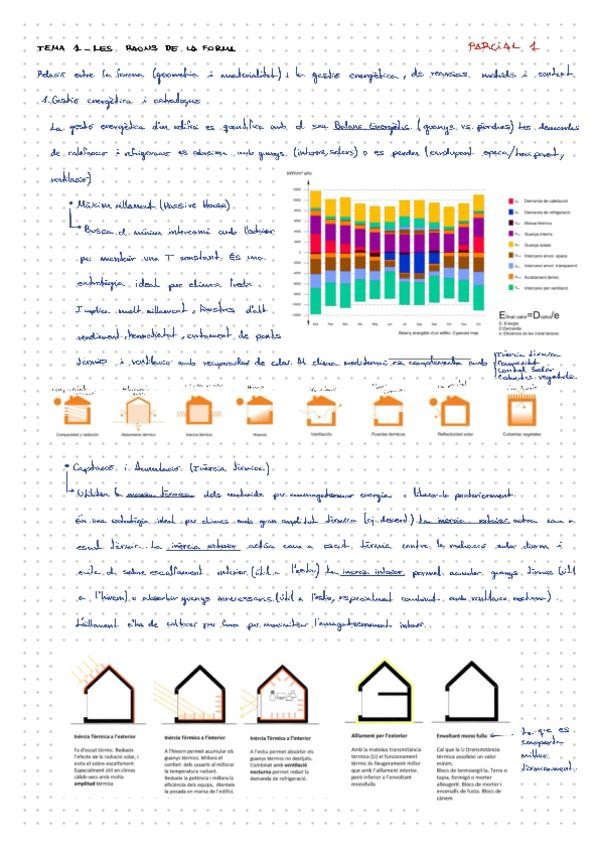 TEMA 1 - LES RAONS DE LA FORMA
PARCIAL 1
Relació entre la forma (geometria i materialitat) i la gestió energètica, de recursos, materials i context
1. Gestió energètica i estratègies
La gestió energètica d'un edifici es quantifica amb el seu Balanç Energètic (guanys vs. pèrdues) Les demandes
de calefacció i refrigeració es amb guanys (interns, solars) o es perden (envolupant opaca/transparent,
ventilació)
• Màxim aïllament (Passive House)
Busca el mínim intercanvi amb l'exterior
per mantenir una T constant. És una
estratègia ideal per climes freds.
Implica molt aïllament, finestres d'alt
rendiment, hermeticitat, tractament de ponts
tèrmics i ventilació amb recuperador de calor. Al clima mediterrani es complementa amb
inèrcia tèrmica
compacitat
control solar
cobertes vegetals
kWh/m² año
Demanda de calefacció
Demanda de refrigeració
Guanys interns
Guanys solars
Intercanvi envol. opaca
Intercanvi envol. transparent
Acoblament tèrmic
Intercanvi per ventilació
E final calor=D calor/e
E: Energia
D: Demanda
e: Eficiència de les instal·lacions
Balanç energètic d'un edifici.
Compacidad y radiación
Aislamiento térmico
Inercia térmica
Huecos
Ventilación
Puentes térmicos
Reflectividad solar
Cubiertas vegetales
• Captació i Acumulació (Inèrcia tèrmica)
Utilitzen la massa tèrmica dels materials per emmagatzemar energia i lliberar-la posteriorment.
És una estratègia ideal per climes amb gran amplitud tèrmica (ej. desert) La inèrcia exterior actua com a
escut tèrmic. La inèrcia exterior actua com a escut tèrmic contra la radiació solar directa i
evita el sobre escalfament interior (útil a l'estiu) La inèrcia interior permet acumular guanys tèrmics (útil
a l'hivern) o absorbir guanys innecessaris (útil a l'estiu, especialment combinat amb ventilació nocturna).
L'aïllament s'ha de col·locar per fora per maximitzar l'emmagatzemament interior.
Inèrcia Tèrmica a l'exterior
Fa d'escut tèrmic. Redueix
l'efecte de la radiació solar, i
evita el sobre escalfament.
Especialment útil en climes
càlids-secs amb molta
amplitud tèrmica
Inèrcia Tèrmica a l'interior
A l'hivern permet acumular els
guanys tèrmics. Millora el
confort dels usuaris al millorar
la temperatura radiant.
Redueix la potència i millora la
eficiència dels equips. Alenteix
la posada en marxa de l'edifici.
Inèrcia Tèrmica a l'interior
A l'estiu permet absorbir els
guanys tèrmics no desitjats.
Combinat amb ventilació
nocturna permet reduir la
demanda de refrigeració.
Aïllament per l'exterior
Amb la mateixa transmitància
tèrmica (U) el funcionament
tèrmic és lleugerament millor
que amb l'aïllament interior,
però inferior a l'envoltant
monofulla
Envoltant mono fulla
Cal que la U (transmitància
tèrmica assoleixi un valor
mínim.
Blocs de termoargila, Terra o
tapia, formigó o morter
alleugerit. Blocs de morter i
encenalls de fusta. Blocs de
cànem
La que es
comporta
millor
tèrmicament.